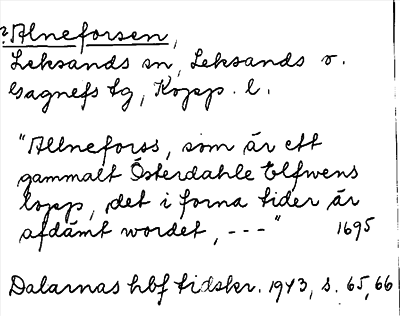 ?Alneforsen,
Leksands sn, Leksands o.
Gagnefs tg, Kopp. l.
"Allneforss, som är ett
gammalt Österdahle Elfwens
lopp, det i forna tider är
afdämt wordet, ---" 1695
Dalarnas hbf tidskr. 1943, s. 65, 66